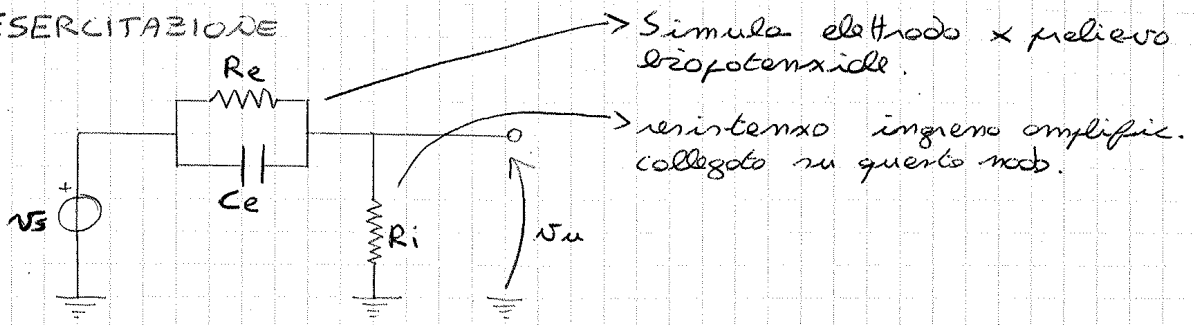 ESERCITAZIONE
Simula elettrodo x prelievo
biopotenziale.
resistenza ingresso amplific.
collegato su questo nodo.
Re
Ce
+
vs
Ri
vu